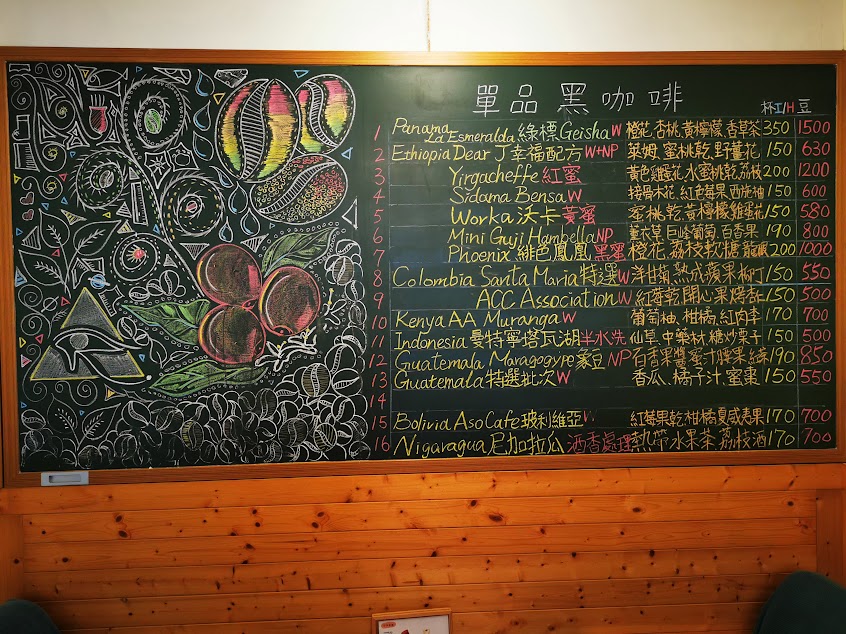 單品黑咖啡 杯I/H 豆
1 Panama La Esmeralda 綠標 Geisha W 橙花,杏桃,黃檸檬,香草茶 350 1500
2 Ethiopia Dear J 幸福配方 W+NP 萊姆,蜜桃乾,野薑花 150 630
3 Yirgacheffe 紅蜜 黃色雞蛋花,水蜜桃乾,荔枝 200 1200
4 Sidama Bensa W 接骨木花,紅色莓果,西施柚 150 600
5 Worka 沃卡 黃蜜 蜜桃乾,黃檸檬,雞蛋花 150 580
6 Mini Guji Hambella NP 薰衣草,巨峰葡萄,百香果 190 800
7 Phoenix 緋色鳳凰 黑蜜 橙花,荔枝軟糖,龍眼 200 1000
8 Colombia Santa Maria 特選 W 洋甘菊,熟成蘋果,柳丁 150 550
9 ACC Association W 紅莓乾,開心果,烤杏仁 150 500
10 Kenya AA Muranga W 葡萄柚,柑橘,紅肉李 170 700
11 Indonesia 曼特寧塔瓦湖 半水洗 仙草,中藥材,糖炒栗子 150 500
12 Guatemala Maragogype 象豆 NP 百香果醬,蜜汁腰果 190 850
13 Guatemala 特選批次 W 香瓜,橘子汁,蜜棗 150 550
14
15 Bolivia Aso Cafe 玻利維亞 W 紅莓果乾,柑橘,夏威夷果 170 700
16 Nigaragua 尼加拉瓜 酒香處理 熱帶水果茶,荔枝酒 170 700